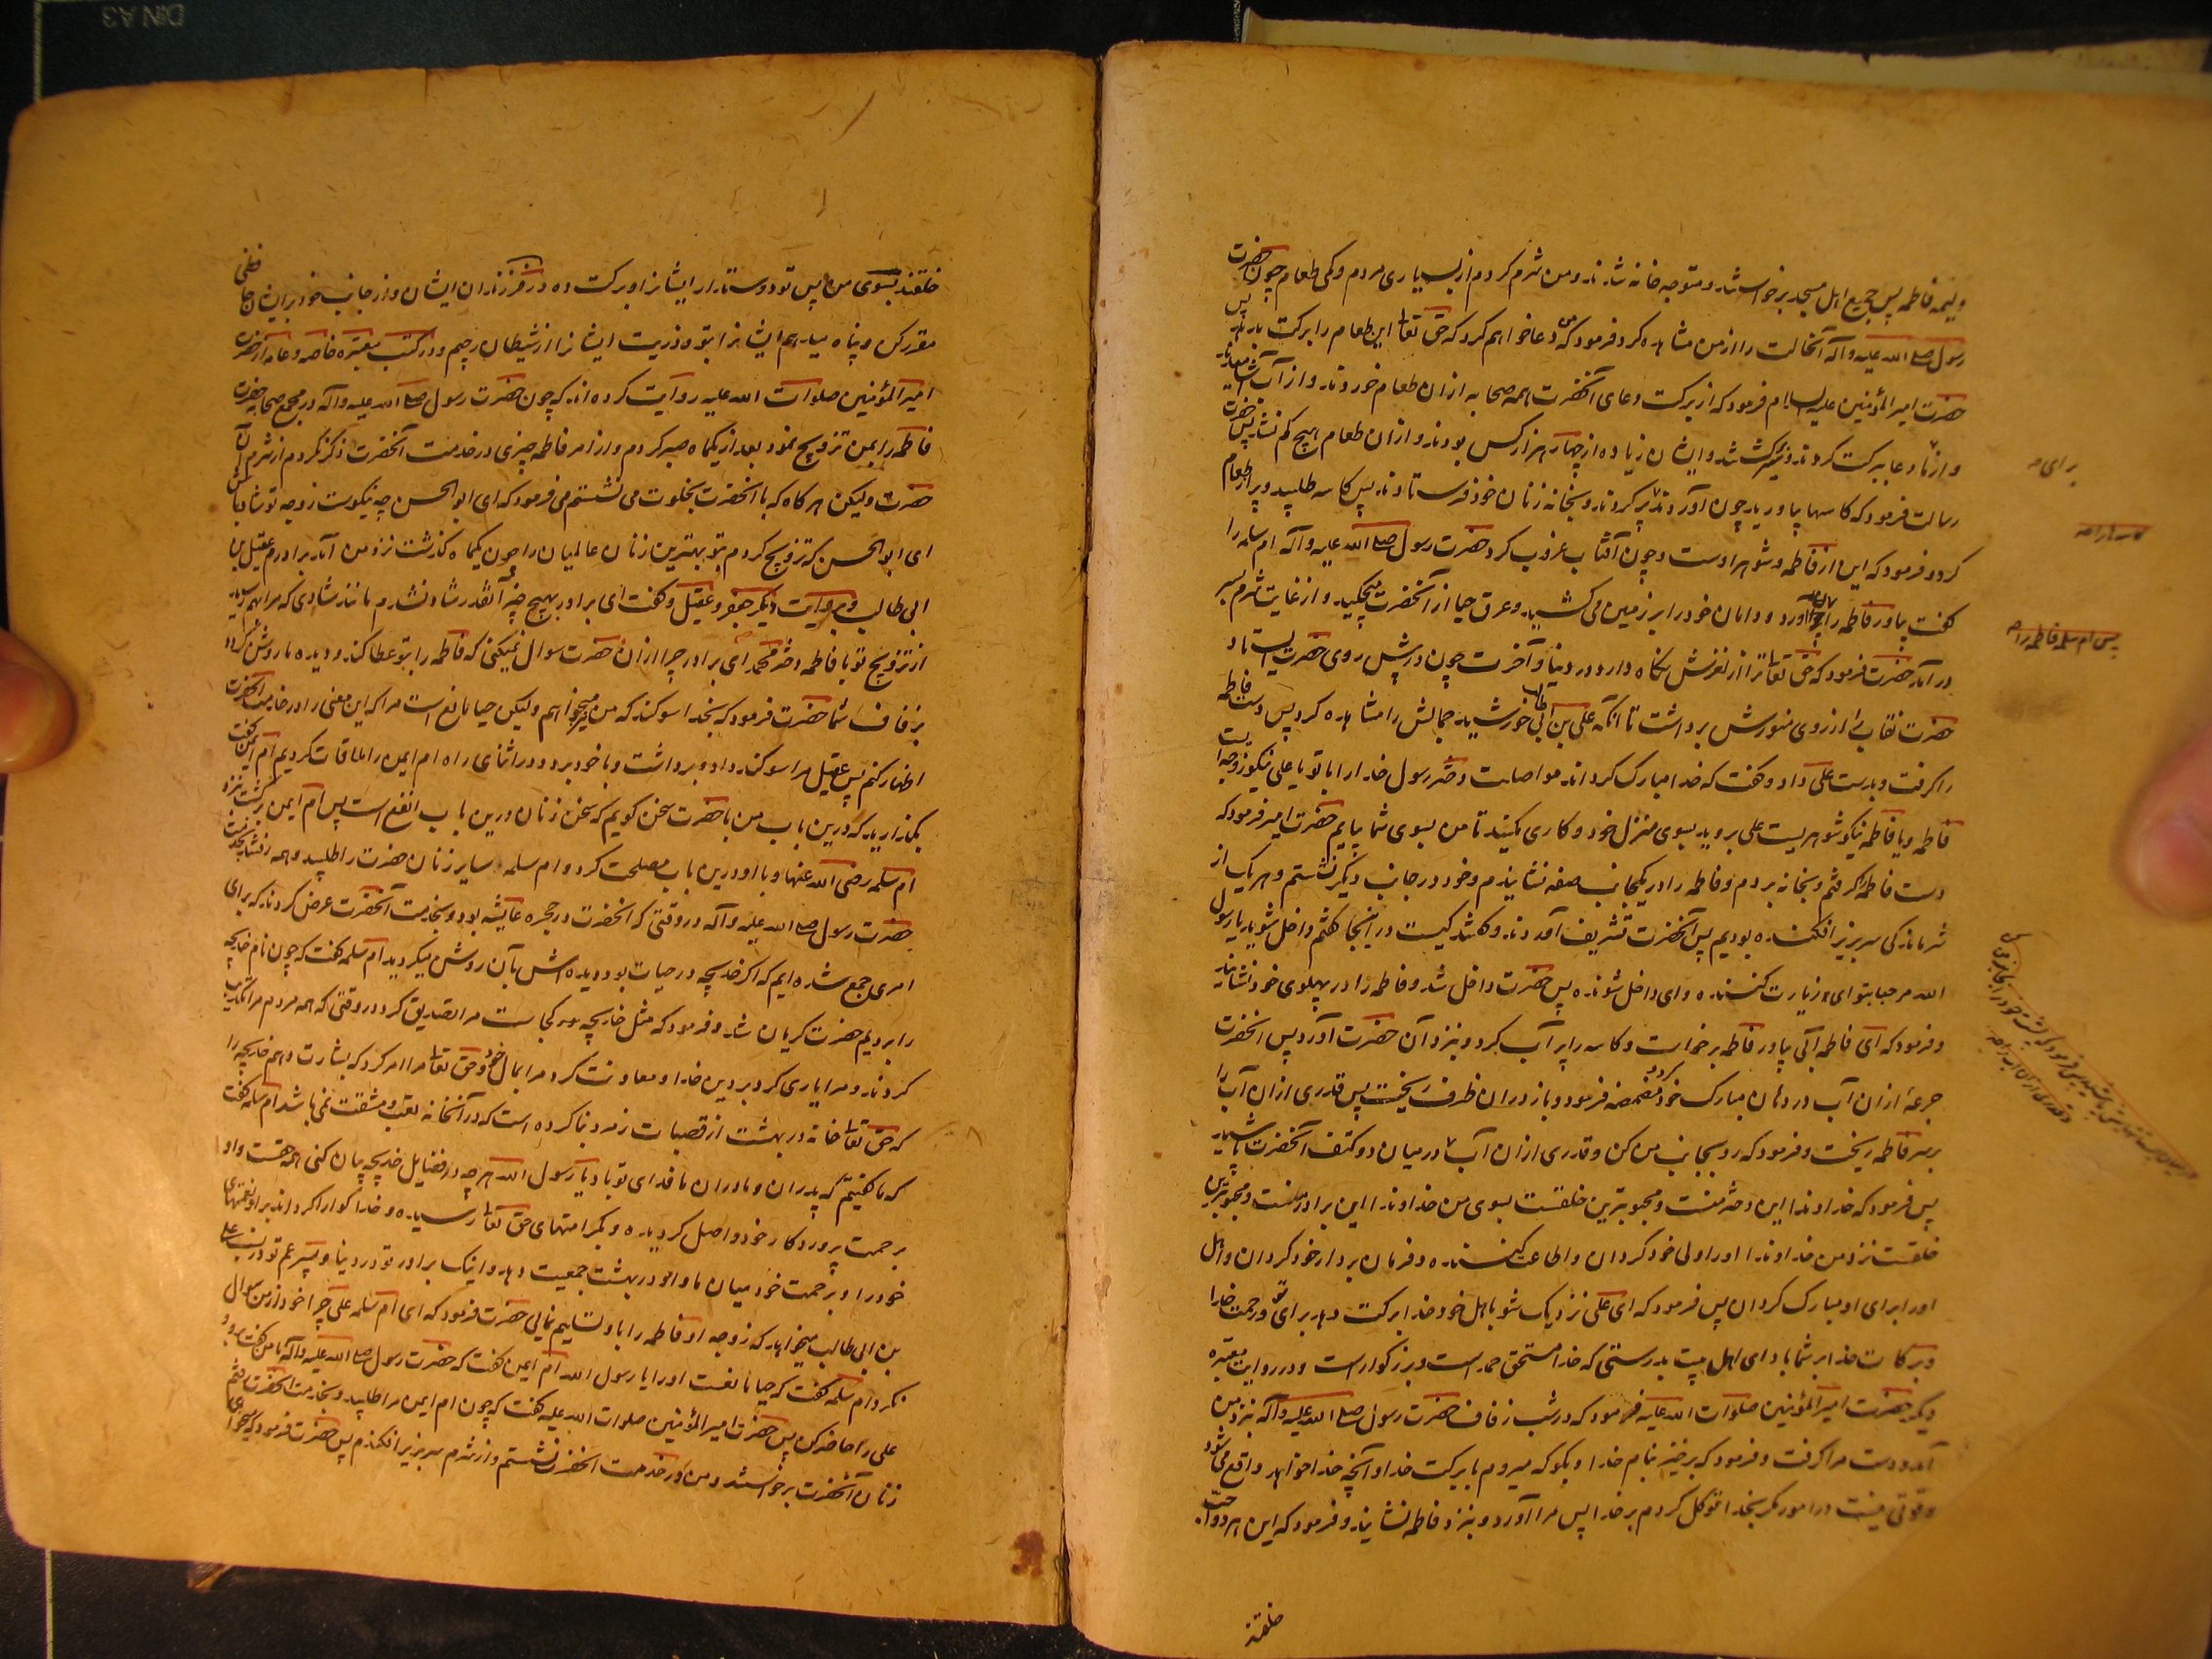 ولیمه فاطمه پس جمیع اهل مسجد برخواستند و متوجه خانه شدند و من شرم کردم از بسیاری مردم و کمی طعام چون حضرت
رسول صلی الله علیه و آله آنحالت را از من مشاهده کرد فرمود که من دعا خواهم کرد که حق تعالی این طعام را برکت بدهد پس
حضرت امیر المؤمنین علیه السلام فرمود که از برکت دعای آنحضرت همه صحابه از ان طعام خوردند و از آب آشامیدند
و از ما دعا ببرکت کردند و متفرق شدند و ایشان زیاده از چهار هزار کس بودند و از ان طعام هیچ کم نشد پس حضرت
رسالت فرمود که کاسها بیاورید چون آوردند پر کردند و بخانه زنان خود فرستادند پس کاسه طلبید و پر از طعام
کرد و فرمود که این از فاطمه و شوهر اوست و چون آفتاب غروب کرد حضرت رسول صلی الله علیه و آله ام سلمه را
گفت بیاور فاطمه را آورد و دامان خود را بر زمین می کشید و عرق حیا از آنحضرت میچکید و از غایت شرم بسر
در آمد حضرت فرمود که حق تعالی ترا از لغزش نگاه دارد در دنیا و آخرت چون در پیش روی حضرت ایستاد
حضرت نقاب را از روی منورش برداشت تا آنکه علی بن ابی طالب خورشید جمالش را مشاهده کرد پس دست فاطمه
را گرفت و بدست علی داد و گفت که خدا مبارک گرداند مواصلت دختر رسول خدا را با تو یا علی نیکو زوجه ایست
فاطمه و یا فاطمه نیکو شوهریست علی بروید بسوی منزل خود و کاری مکنید تا من بسوی شما بیایم حضرت امیر فرمود که
دست فاطمه را گرفتم و بخانه بردم و فاطمه را در یکجانب صفه نشانیدم و خود در جانب دیگر نشستم و هر یک از
شرمندگی سر بزیر افکنده بودیم پس آنحضرت تشریف آوردند و گفتند کیست در اینجا گفتم داخل شوید یا رسول
الله مرحبا بتو ای زیارت کننده و ای داخل شونده پس حضرت داخل شد و فاطمه را در پهلوی خود نشانید
و فرمود که ای فاطمه آبی بیاور فاطمه برخواست و کاسه را پر آب کرد و بنزد آن حضرت آورد پس آنحضرت
جرعهٔ از ان آب در دهان مبارک خود کرد و مضمضه فرمود و باز در ان ظرف ریخت پس قدری از ان آب را
بر سر فاطمه ریخت و فرمود که رو بجانب من کن و قدری از ان آب در میان دو کتف آنحضرت پاشید
پس فرمود که خداوندا این دختر منست و محبوبترین خلقست بسوی من خداوندا این برادر منست و محبوبترین
خلقست نزد من خداوندا او را ولی خود گردان و اطاعت کننده و فرمان بردار خود گردان و اهل
او را برای او مبارک گردان پس فرمود که ای علی نزدیک شو باهل خود خدا برکت دهد برای تو و رحمت خدا
و برکات خدا بر شما باد ای اهل بیت بدرستی که خدا مستحق حمد است و بزرگوار است و در روایت معتبره
دیگر حضرت امیر المؤمنین صلوات الله علیه فرمود که در شب زفاف حضرت رسول صلی الله علیه و آله بنزد من
آمد و دست مرا گرفت و فرمود که برخیز بنام خدا و بگو که میروم با برکت خدا و آنچه خدا خواهد واقع می شود
و قوتی نیست در امور مگر بخدا توکل کردم بر خدا پس مرا آورد و بنزد فاطمه نشانید و فرمود که این هر دو احب
خلقند
برای
پس ام سلمه فاطمه را
خلقند بسوی من پس تو دوست دار ایشانرا و برکت ده در فرزندان ایشان و از جانب خود بر ایشان حافظی
مقرر کن و پناه میدهم ایشانرا بتو و ذریت ایشانرا از شیطان رجیم و در کتب معتبره خاصه و عامه از حضرت
امیر المؤمنین صلوات الله علیه روایت کرده اند که چون حضرت رسول صلی الله علیه و آله در مجمع صحابه حضرت
فاطمه را بمن تزویج نمود بعد از یکماه صبر کردم و از امر فاطمه چیزی در خدمت آنحضرت ذکر نکردم از شرم آن
حضرت ولیکن هر گاه که با آنحضرت بخلوت می نشستم می فرمود که ای ابو الحسن چه نیکوست زوجه تو شاد باش
ای ابو الحسن که تزویج کردم بتو بهترین زنان عالمیان را چون یکماه گذشت نزد من آمد برادرم عقیل بن
ابی طالب و بروایت دیگر جعفر و عقیل و گفت ای برادر بهیچ چیز آنقدر شاد نشدم مانند شادی که مرا بهم رسید
از تزویج تو با فاطمه دختر محمد ای برادر چرا از ان حضرت سوال نمیکنی که فاطمه را بتو عطا کند و دیده ما روشن گردد
بزفاف شما حضرت فرمود که بخدا سوگند که من نیز میخواهم ولیکن حیا مانع است مرا که این معنی را در خدمت آنحضرت
اظهار کنم پس عقیل مرا سوگند داد و برداشت و با خود برد و در اثنای راه ام ایمن را ملاقات کردیم ام ایمن گفت
بگذارید که درین باب من با حضرت سخن گویم که سخن زنان درین باب انفع است پس ام ایمن برگشت نزد
ام سلمه رضی الله عنها و با او درین باب مصلحت کرد و ام سلمه سایر زنان حضرت را طلبید و همه رفتند بخدمت
حضرت رسول صلی الله علیه و آله در وقتی که آنحضرت در حجره عایشه بود و بخدمت آنحضرت عرض کردند که برای
امری جمع شده ایم که اگر خدیجه در حیات بود دیده اش بآن روشن میگردید ام سلمه گفت که چون نام خدیجه
را بردیم حضرت گریان شد و فرمود که مثل خدیجه کجاست مرا تصدیق کرد در وقتی که همه مردم مرا تکذیب
کردند و مرا یاری کرد بر دین خدا و معاونت کرد مرا بمال خود و حق تعالی مرا امر کرد که بشارت دهم خدیجه را
که حق تعالی خانه در بهشت از قصبات زمرد بنا کرده است که در آنخانه تعب و مشقت نمی باشد ام سلمه گفت
که ما گفتیم که پدران و مادران ما فدای تو باد یا رسول الله هر چه در فضایل خدیجه بیان کنی همه حقست و او
برحمت پروردگار خود واصل گردیده و بکرامتهای حق تعالی رسیده و خدا گوارا گرداند بر او نعمتهای
خود را و برحمت خود میان ما و او در بهشت جمعیت دهد و اینک برادر تو در دنیا و پسر عم تو در نسب علی
بن ابی طالب میخواهد که زوجه او فاطمه را باو تسلیم نمایی حضرت فرمود که ای ام سلمه علی چرا خود از من سوال
نکرد ام سلمه گفت که حیا مانعست او را یا رسول الله ام ایمن گفت که حضرت رسول صلی الله علیه و آله با من گفت برو
علی را حاضر کن پس حضرت امیر المؤمنین صلوات الله علیه گفت که چون ام ایمن مرا طلبید و بخدمت آنحضرت رفتم
زنان آنحضرت برخواستند و من در خدمت آنحضرت نشستم و از شرم سر بزیر افکندم پس حضرت فرمود که میخواهی